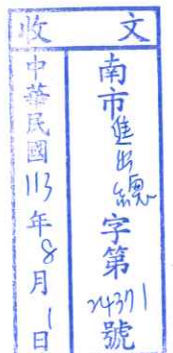 收文
南市進出總字第24371號
中華民國113年8月1日